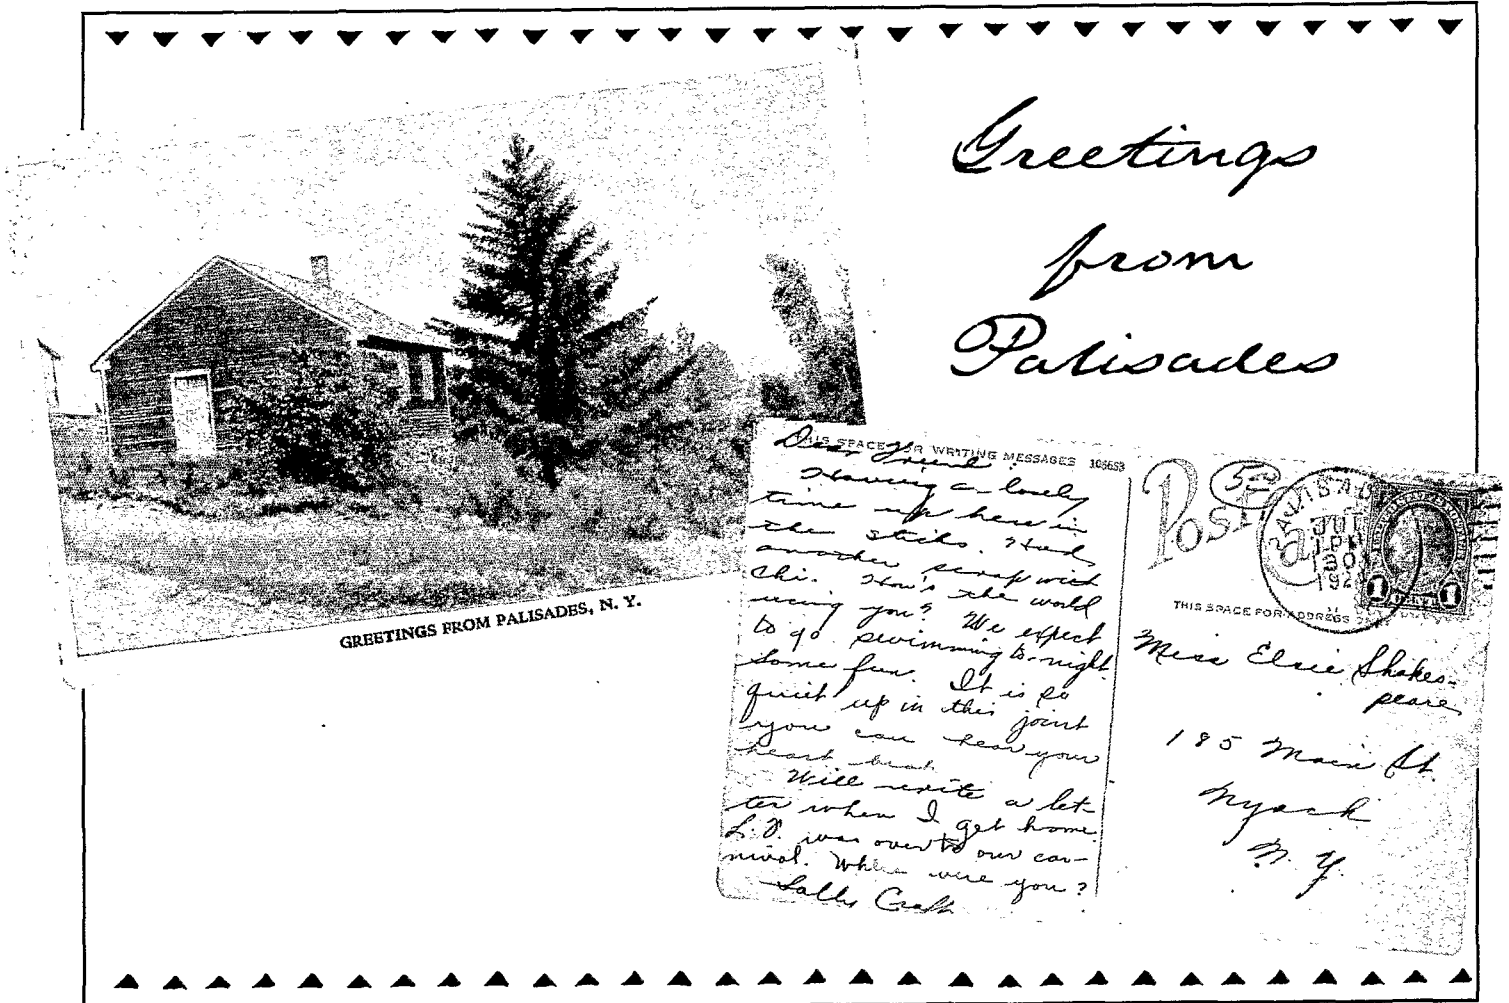 Greetings
from
Palisades
GREETINGS FROM PALISADES, N. Y.
THIS SPACE FOR WRITING MESSAGES 106653
Dear Friend:
Having a lovely
time up here in
the sticks. Had
another scrap with
Chi. How's the world
using you? We expect
to go swimming to-night
Some fun. It is so
quiet up in this joint
you can hear your
heart beat.
Will write a let-
ter when I get home.
was over to our car-
nival. Where were you?
Sally
Post
PALISAD
JUL
30
THIS SPACE FOR ADDRESS
1 1
Miss Elsie Shakes-
peare
185 Main St.
Nyack
N. Y.